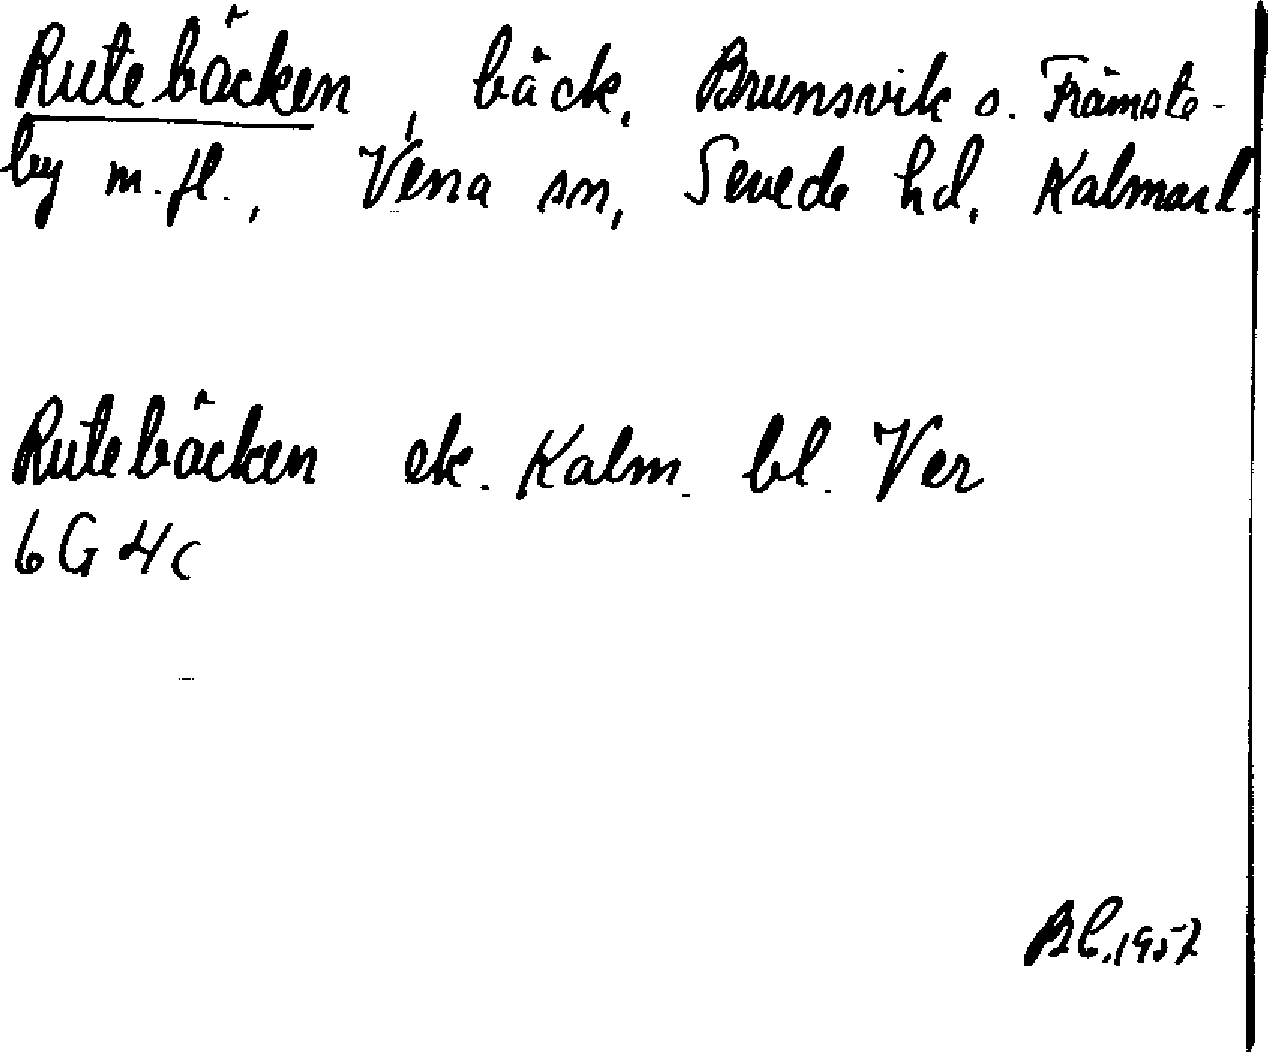 Rutebäcken, bäck, Brunsvik o. Främste-
by m. fl., Vena sn, Sevede hd, Kalmar l.
Rutebäcken ek. Kalm. bl. Ver
6G 4c
1957